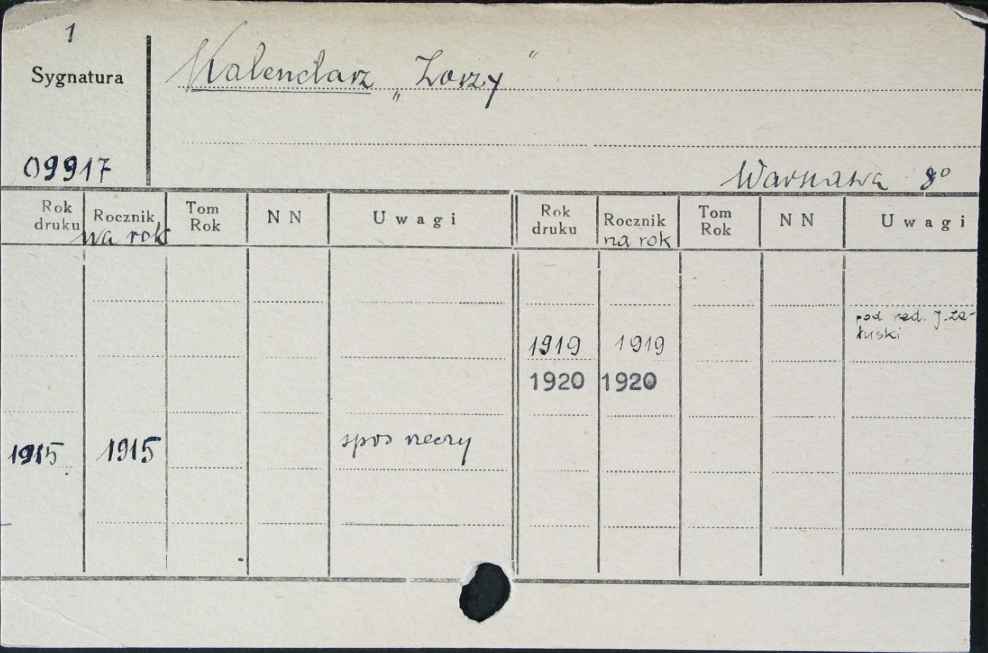 1
Sygnatura
Kalendarz „Zorzy"
09917
Warszawa 8°
Rok druku Rocznik na rok Tom Rok NN Uwagi Rok druku Rocznik na rok Tom Rok NN Uwagi
pod red. J. Za-
łuski
1919 1919
1920 1920
1915 1915 spis rzeczy